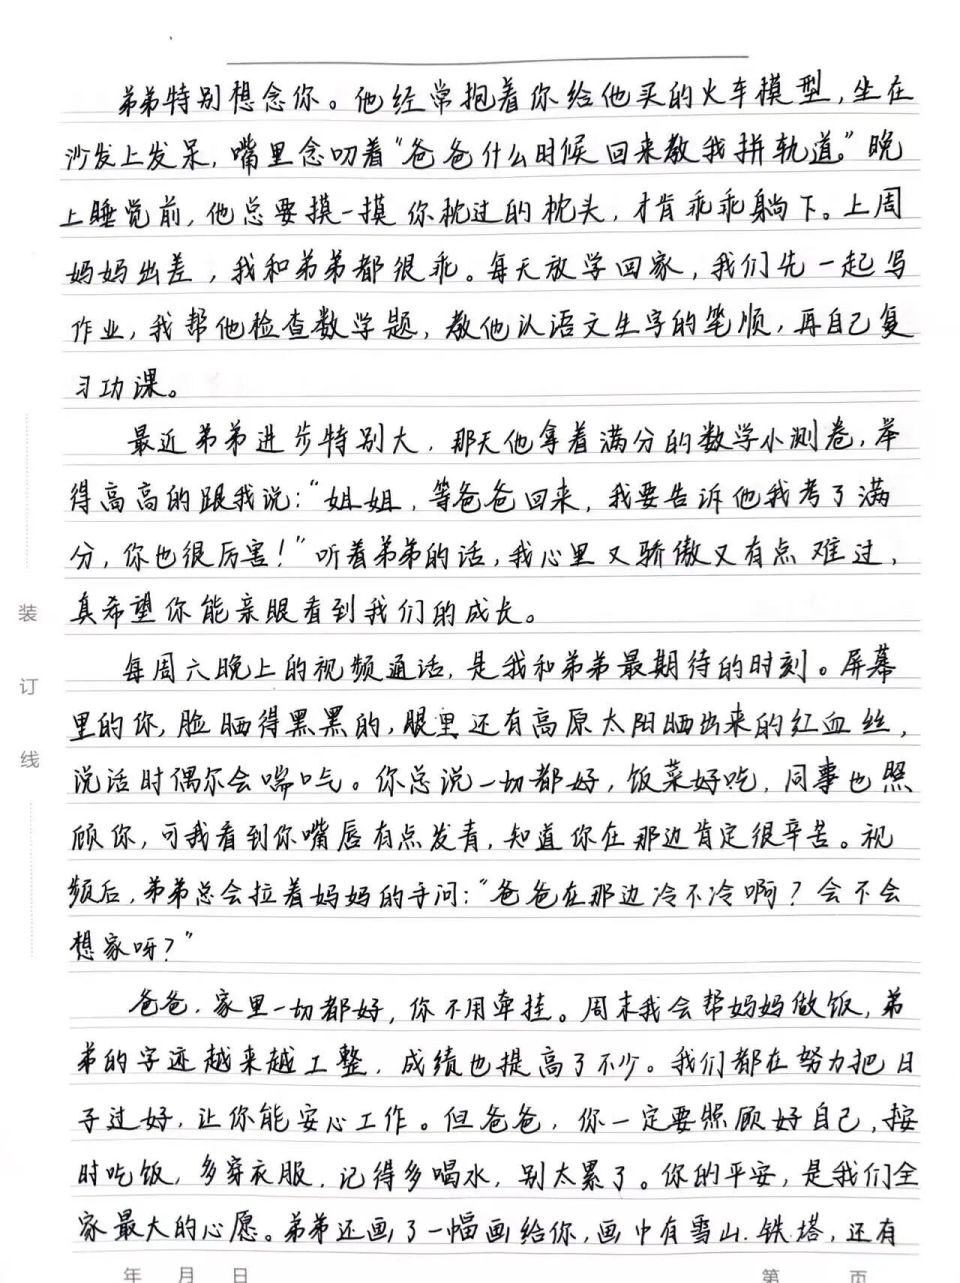 弟弟特别想念你。他经常抱着你给他买的火车模型，坐在
沙发上发呆，嘴里念叨着“爸爸什么时候回来教我拼轨道。”晚
上睡觉前，他总要摸一摸你枕过的枕头，才肯乖乖躺下。上周
妈妈出差，我和弟弟都很乖。每天放学回家，我们先一起写
作业，我帮他检查数学题，教他认语文生字的笔顺，再自己复
习功课。
最近弟弟进步特别大，那天他拿着满分的数学小测卷，举
得高高的跟我说：“姐姐，等爸爸回来，我要告诉他我考了满
分，你也很厉害！”听着弟弟的话，我心里又骄傲又有点难过，
真希望你能亲眼看到我们的成长。
每周六晚上的视频通话，是我和弟弟最期待的时刻。屏幕
里的你，脸晒得黑黑的，眼里还有高原太阳晒出来的红血丝，
说话时偶尔会喘气。你总说一切都好，饭菜好吃，同事也照
顾你，可我看到你嘴唇有点发青，知道你在那边肯定很辛苦。视
频后，弟弟总会拉着妈妈的手问：“爸爸在那边冷不冷啊？会不会
想家呀？”
爸爸，家里一切都好，你不用牵挂。周末我会帮妈妈做饭，弟
弟的字迹越来越工整，成绩也提高了不少。我们都在努力把日
子过好，让你能安心工作。但爸爸，你一定要照顾好自己，按
时吃饭，多穿衣服，记得多喝水，别太累了。你的平安，是我们全
家最大的心愿。弟弟还画了一幅画给你，画中有雪山、铁塔，还有
装
订
线
年 月 日
第 页